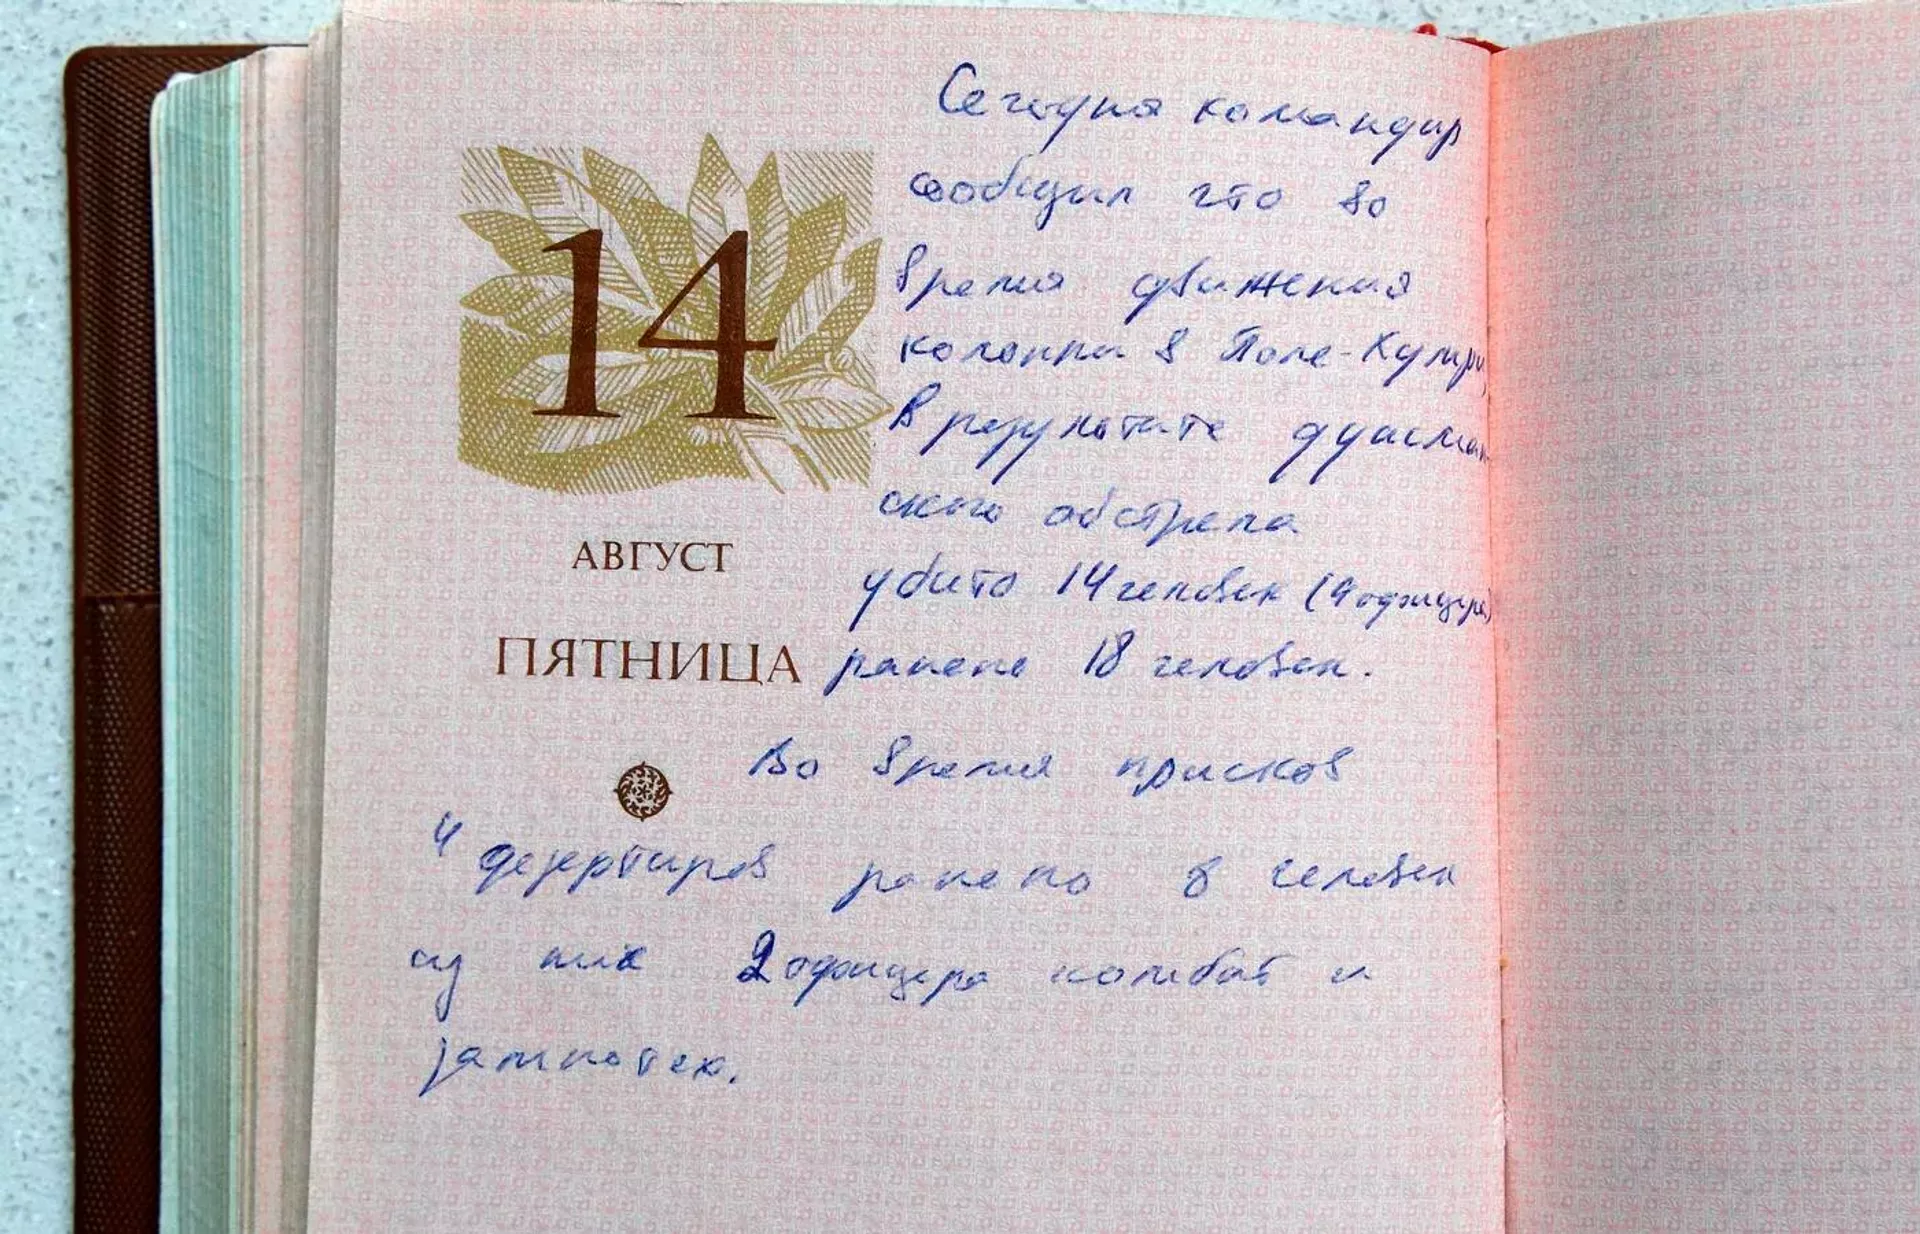 Сегодня командир
сообщил что во
14
время движения
колонны в Поле-Хумри,
В результате душман
ского обстрела
АВГУСТ
убито 14 человек (4 офицера)
ПЯТНИЦА
ранено 18 человек.
Во время
4 дезертиров ранено 8 человек
из них 2 офицера комбат и
зампотех.